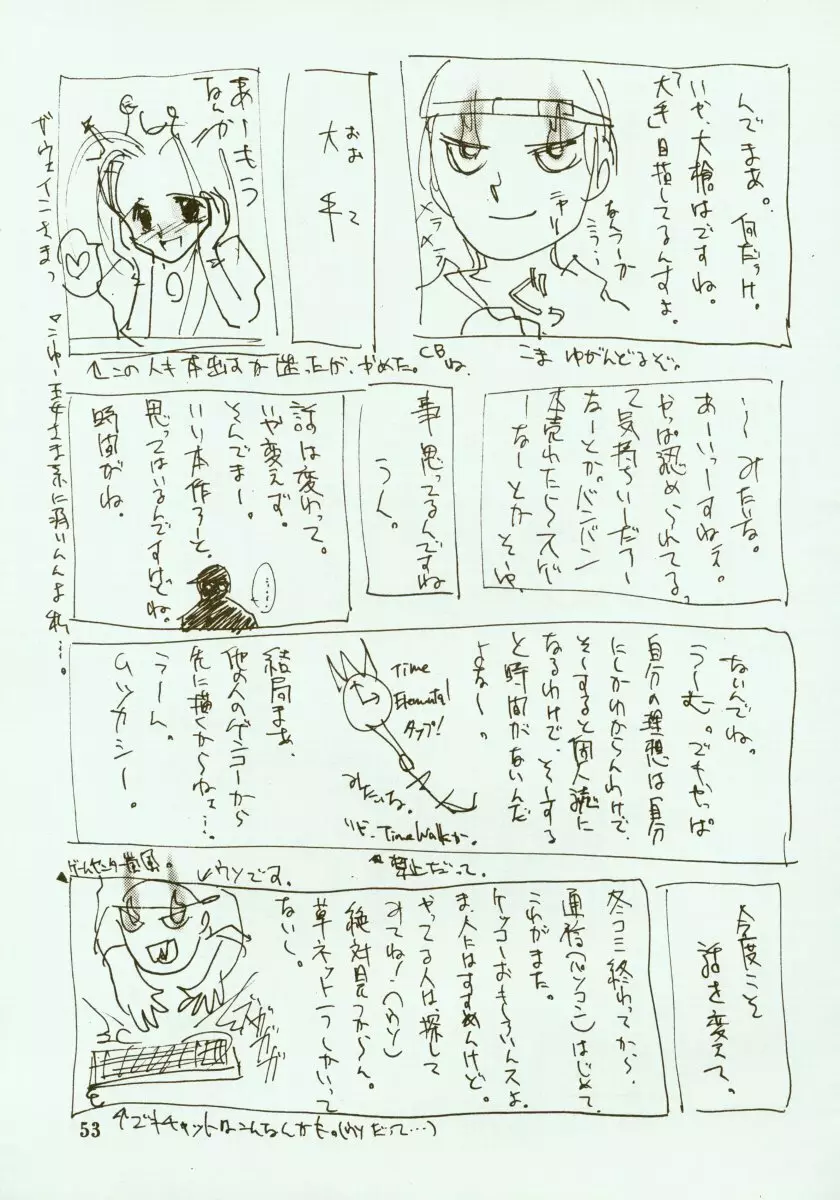 んでまあ。何だっけ。
いや、大槍はですね。
「大手」目指してるんすよ。
なんつーか
こう…
ニヤリ
メラメラ
こまゆがんどるぞ。
おおて
大手
あーもう
なんかー
ガウェインさまっ
↑この人も本出すか迷ったが、やめた。CBね。
〜みたいな。
あーいっすねえ。
やっぱ認められてる
て気持ちいーだろー
なーとか。バンバン
本売れたらスゲ
ーなーとかそーゆ
事思ってるんですね
うん。
話は変わって。
いや変えず。
そんでまー。
いい本作ろーと。
思ってはいるんですけどね。
時間がね。
ないんでね。
うーむ。でもやっぱ
自分の理想は自分
にしかわからんわけで、
そーすると個人誌に
なるわけで、そーする
と時間がないんだ
よなー。
Time
Elemental
タップ!
みたいな。
Time Walkか。
禁止だって。
結局まあ、
他の人のゲンコーから
先に描くからねェ…。
うーん。
ムツカシー。
今度こそ
話を変えて。
冬コミ終わってから、
通信(パソコン)はじめて
これがまた。
ケッコーおもしろいんスよ。
ま、人にはすすめんけど。
やってる人は探して
みてねー!(ウソ)
絶対見つからん。
草ネット一つしかいって
ないし。
ゲームセンター嵐風。
↙ウソです。
ガガガガ
↑でもチャットはこんなんかも。(ウソだって…)
53